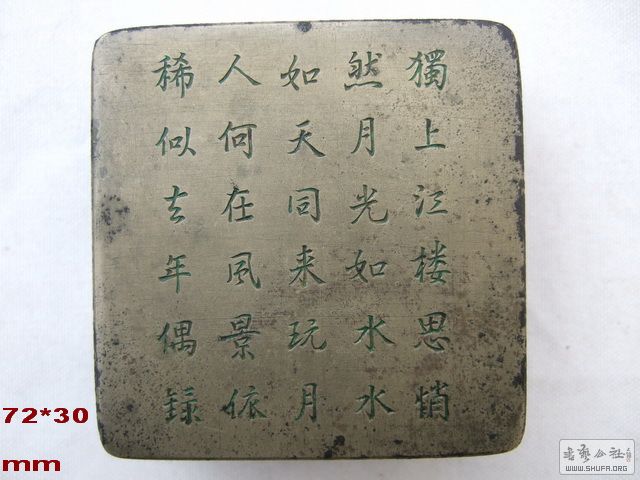 獨上江楼思悄
然月光如水水
如天同来玩月
人何在風景依
稀似去年偶録
72*30
mm
WWW.SHUFA.ORG